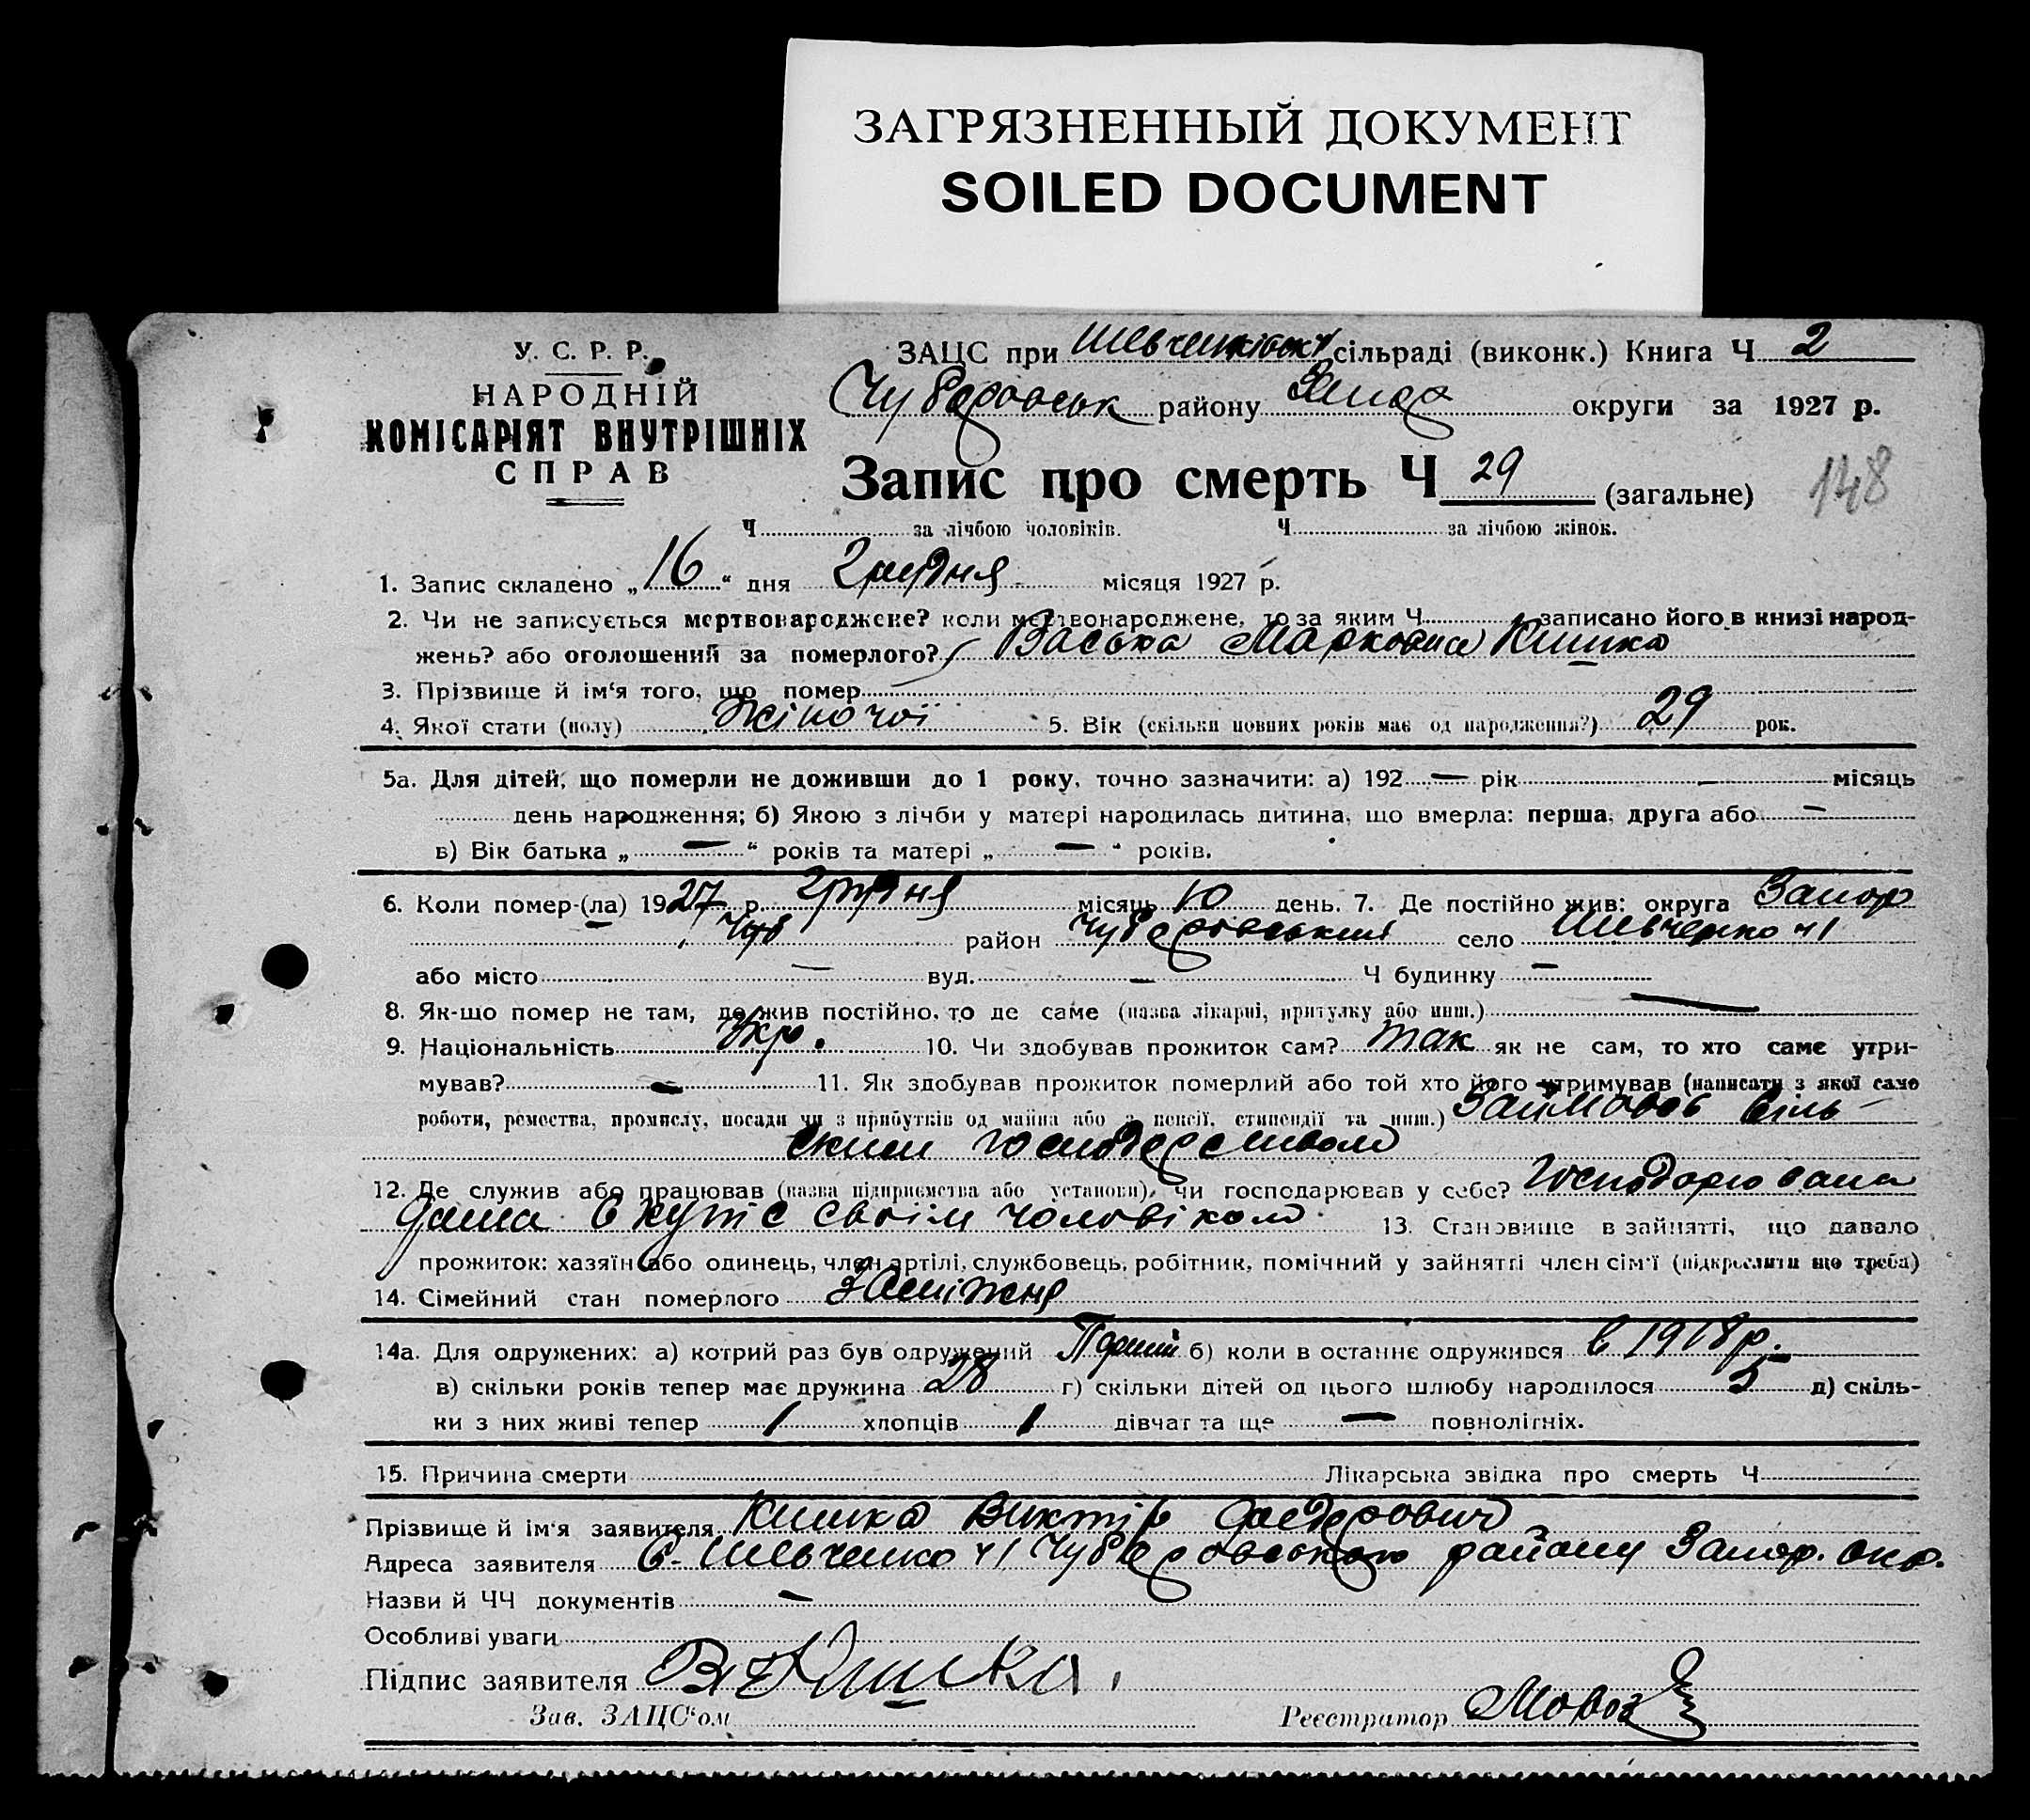 ЗАГРЯЗНЕННЫЙ ДОКУМЕНТ
SOILED DOCUMENT
У. С. Р. Р.
НАРОДНІЙ
КОМІСАРІЯТ ВНУТРІШНІХ
СПРАВ
ЗАЦС при Шевченківськ сільраді (виконк.) Книга Ч 2
Чубаровськ району Запор округи за 1927 р.
Запис про смерть Ч 29 (загальне)
148
Ч за лічбою чоловіків. Ч за лічбою жінок.
1. Запис складено „16“ дня Грудня місяця 1927 р.
2. Чи не записується мертвонароджене? коли мертвонароджене, то за яким Ч записано його в книзі народ-
жень? або оголошений за померлого? Васька Кишка
3. Прізвище й ім‘я того, що помер
4. Якої стати (полу) Жіночої 5. Вік (скільки повних років має од народження?) 29 рок.
5а. Для дітей, що померли не доживши до 1 року, точно зазначити: а) 192 — рік — місяць
день народження; б) Якою з лічби у матері народилась дитина, що вмерла: перша, друга або —
в) Вік батька „ — “ років та матері „ — “ років.
6. Коли помер-(ла) 1927 р. Грудня місяць 10 день. 7. Де постійно жив: округа Запор
Чуб район Чубаровський село Шевченко ч 1
або місто — вул. — Ч будинку —
8. Як-що помер не там, де жив постійно, то де саме (назва лікарні, притулку або инш.) —
9. Національність Укр. 10. Чи здобував прожиток сам? так як не сам, то хто саме утри-
мував? — 11. Як здобував прожиток померлий або той хто його утримував (написати з якої само
роботи, ремества, промислу, посади чи з прибутків од майна або з пенсії, стипендії та инш.) Займалась сіль-
ским господарством
12. Де служив або працював (назва підприємства або установи), чи господарював у себе? Господарювала
дома в купі с своїм чоловіком 13. Становище в зайнятті, що давало
прожиток: хазяїн або одинець, член артілі, службовець, робітник, помічний у зайнятті член сім‘ї (підкреслити що треба)
14. Сімейний стан померлого Заміжня
14а. Для одружених: а) котрий раз був одружений Перший б) коли в останнє одружився в 1918 р.
в) скільки років тепер має дружина 28 г) скільки дітей од цього шлюбу народилося 5 д) скіль-
ки з них живі тепер 1 хлопців 1 дівчат та ще — повнолітніх.
15. Причина смерти Лікарська звідка про смерть Ч
Прізвище й ім‘я заявителя Кишка Виктір Федерович
Адреса заявителя С. Шевченко ч 1 Чубаровського району Запор. окр.
Назви й ЧЧ документів —
Особливі уваги
Підпис заявителя В Кишка
Зав. ЗАЦС‘ом Реєстратор